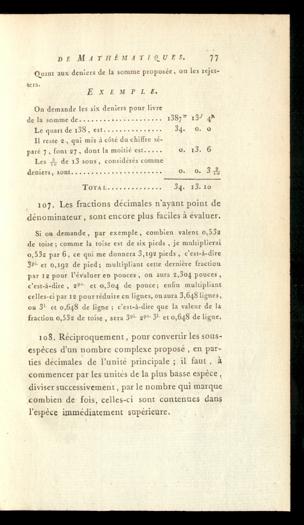 DE MATHÉMATIQUES. 77
Quant aux deniers de la somme proposée, on les rejet-
tera.
EXEMPLE.
On demande les six deniers pour livre
de la somme de.................. 1387ᵗᵗ 13ˢ 4ᵈ
Le quart de 138, est............... 34. 0. 0
Il reste 2, qui mis à côté du chiffre sé-
paré 7, font 27, dont la moitié est..... 0. 13. 6
Les 3/10 de 13 sous, considérés comme
deniers, sont.................... 0. 0. 3 9/10
TOTAL............ 34. 13. 10
107. Les fractions décimales n'ayant point de
dénominateur, sont encore plus faciles à évaluer.
Si on demande, par exemple, combien valent 0,532
de toise; comme la toise est de six pieds, je multiplierai
0,532 par 6, ce qui me donnera 3,192 pieds, c'est-à-dire
3ᵖⁱ· et 0,192 de pied; multipliant cette dernière fraction
par 12 pour l'évaluer en pouces, on aura 2,304 pouces,
c'est-à-dire, 2ᵖᵒ· et 0,304 de pouce; enfin multipliant
celles-ci par 12 pour réduire en lignes, on aura 3,648 lignes,
ou 3ˡ· et 0,648 de ligne; c'est-à-dire que la valeur de la
fraction 0,532 de toise, sera 3ᵖⁱ· 2ᵖᵒ· 3ˡ· et 0,648 de ligne.
108. Réciproquement, pour convertir les sous-
espèces d'un nombre complexe proposé, en par-
ties décimales de l'unité principale; il faut, à
commencer par les unités de la plus basse espèce,
diviser successivement, par le nombre qui marque
combien de fois, celles-ci sont contenues dans
l'espèce immédiatement supérieure.